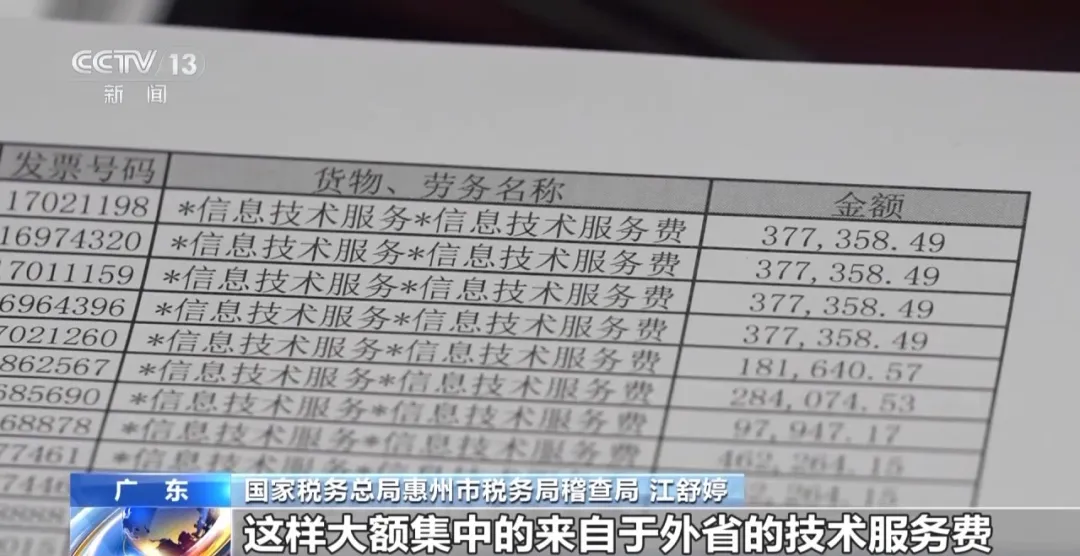 CCTV 13
新闻
发票号码 货物、劳务名称 金额
17021198 *信息技术服务*信息技术服务费 377,358.49
16974320 *信息技术服务*信息技术服务费 377,358.49
17011159 *信息技术服务*信息技术服务费 377,358.49
6964396 *信息技术服务*信息技术服务费 377,358.49
7021260 *信息技术服务*信息技术服务费 181,640.57
862567 *信息技术服务*信息技术服务费 284,074.53
685690 *信息技术服务*信息技术服务费 97,947.17
68878 *信息技术服务*信息技术服务费 462,264.15
77461 *信息技术服务*信息 462,264.15
广东 国家税务总局惠州市税务局稽查局 江舒婷
这样大额集中的来自于外省的技术服务费